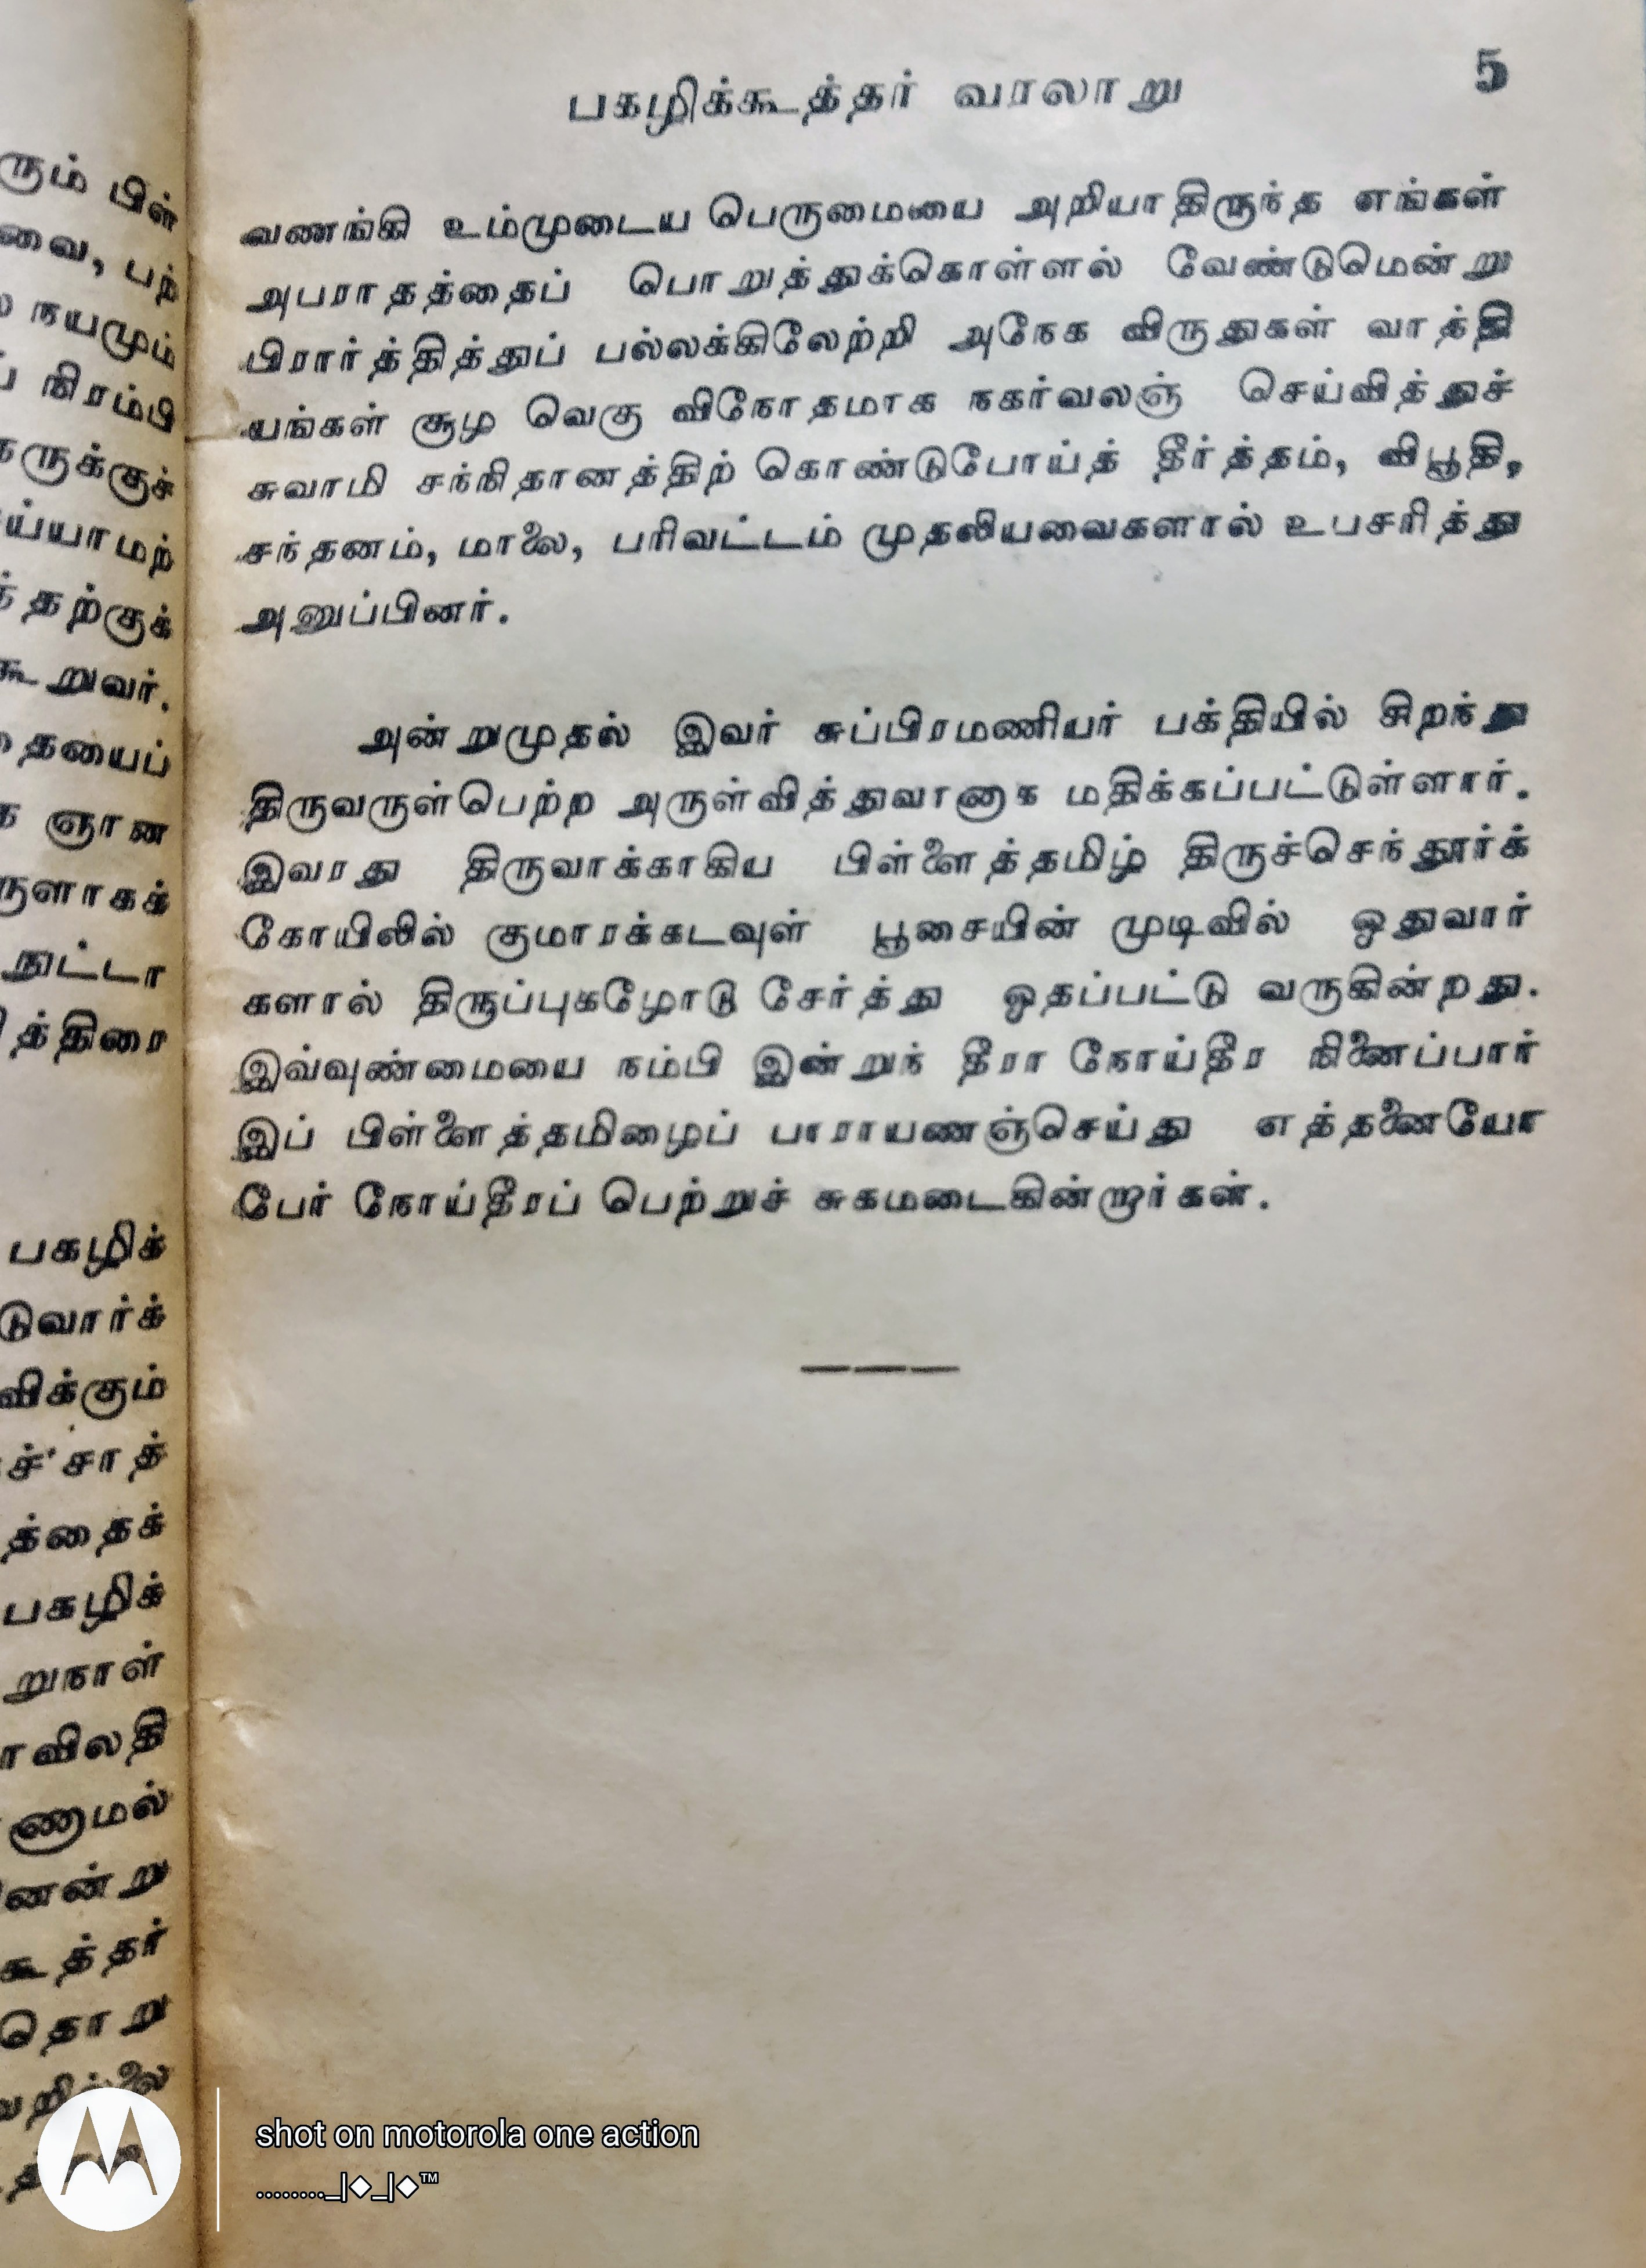 ரும் பிள்
வை, பற்
நயமும்
நிரம்பி
கருக்குச்
ய்யாமற்
தற்குக்
கூறுவர்.
தையைப்
ஞான
ருளாகக்
நுட்டா
த்திரை
பகழிக்
டுவார்க்
விக்கும்
ச்சாத்
த்தைக்
பகழிக்
றுநாள்
விலதி
ணாமல்
னென்று
கூத்தர்
தொறு
பகழிக்கூத்தர் வரலாறு 5
வணங்கி உம்முடைய பெருமையை அறியாதிருந்த எங்கள்
அபராதத்தைப் பொறுத்துக்கொள்ளல் வேண்டுமென்று
பிரார்த்தித்துப் பல்லக்கிலேற்றி அநேக விருதுகள் வாத்தி
யங்கள் சூழ வெகு விநோதமாக நகர்வலஞ் செய்வித்துச்
சுவாமி சந்நிதானத்திற் கொண்டுபோய்த் தீர்த்தம், விபூதி,
சந்தனம், மாலை, பரிவட்டம் முதலியவைகளால் உபசரித்து
அனுப்பினர்.
அன்றுமுதல் இவர் சுப்பிரமணியர் பக்தியில் சிறந்து
திருவருள்பெற்ற அருள்வித்துவானாக மதிக்கப்பட்டுள்ளார்.
இவரது திருவாக்காகிய பிள்ளைத்தமிழ் திருச்செந்தூர்க்
கோயிலில் குமாரக்கடவுள் பூசையின் முடிவில் ஓதுவார்
களால் திருப்புகழோடு சேர்த்து ஓதப்பட்டு வருகின்றது.
இவ்வுண்மையை நம்பி இன்றுந் தீரா நோய்தீர நினைப்பார்
இப் பிள்ளைத்தமிழைப் பாராயணஞ்செய்து எத்தனையோ
பேர் நோய்தீரப் பெற்றுச் சுகமடைகின்றார்கள்.
shot on motorola one action
........_|◆_|◆™